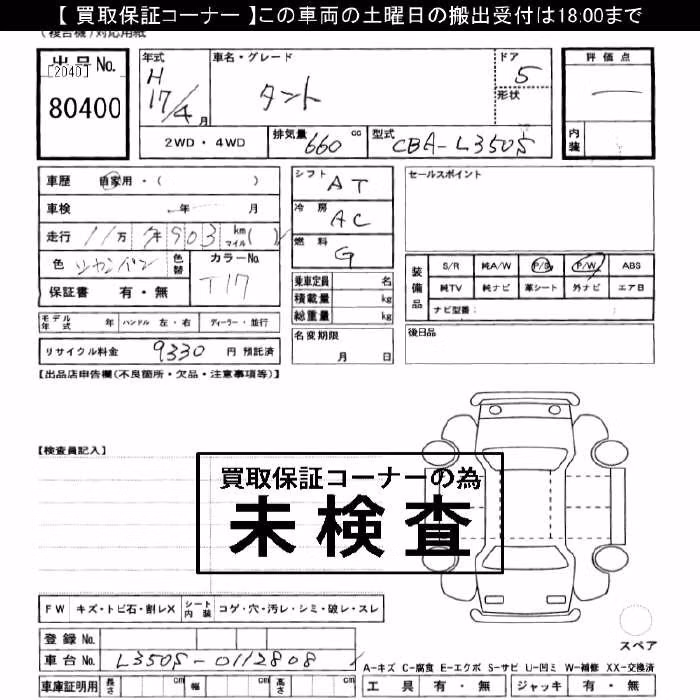 【 買取保証コーナー 】この車両の土曜日の搬出受付は18:00まで
(複合機)対応用紙
出品No.
[2040]
80400
年式
H
17/4月
車名・グレード
タント
ドア
5
形状
評価点
内装
2WD・4WD
排気量 660 cc
型式 CBA-L350S
車歴 自家用・( )
車検 年 月
走行 11万 903 km マイル ( )
色 シャンパン
色替
カラーNo.
T17
保証書 有・無
シフト AT
冷房 AC
燃料 G
乗車定員 名
積載量 kg
総重量 kg
名変期限
月 日
セールスポイント
装備品
S/R 純A/W P/S P/W ABS
純TV 純ナビ 革シート 外ナビ エアB
ナビ型番:
後日品
モデル年式 年 ハンドル 左・右 ディーラー・並行
リサイクル料金 9330 円 預託済
【出品店申告欄(不良箇所・欠品・注意事項等)】
【検査員記入】
買取保証コーナーの為
未検査
FW キズ・トビ石・割レX シート内装 コゲ・穴・汚レ・シミ・破レ・スレ
登録No.
車台No. L350S-0112808
車庫証明用 長さ cm 幅 cm 高さ cm
スペア
A-キズ C-腐食 E-エクボ S-サビ U-凹ミ W-補修 XX-交換済
工具 有・無 ジャッキ 有・無